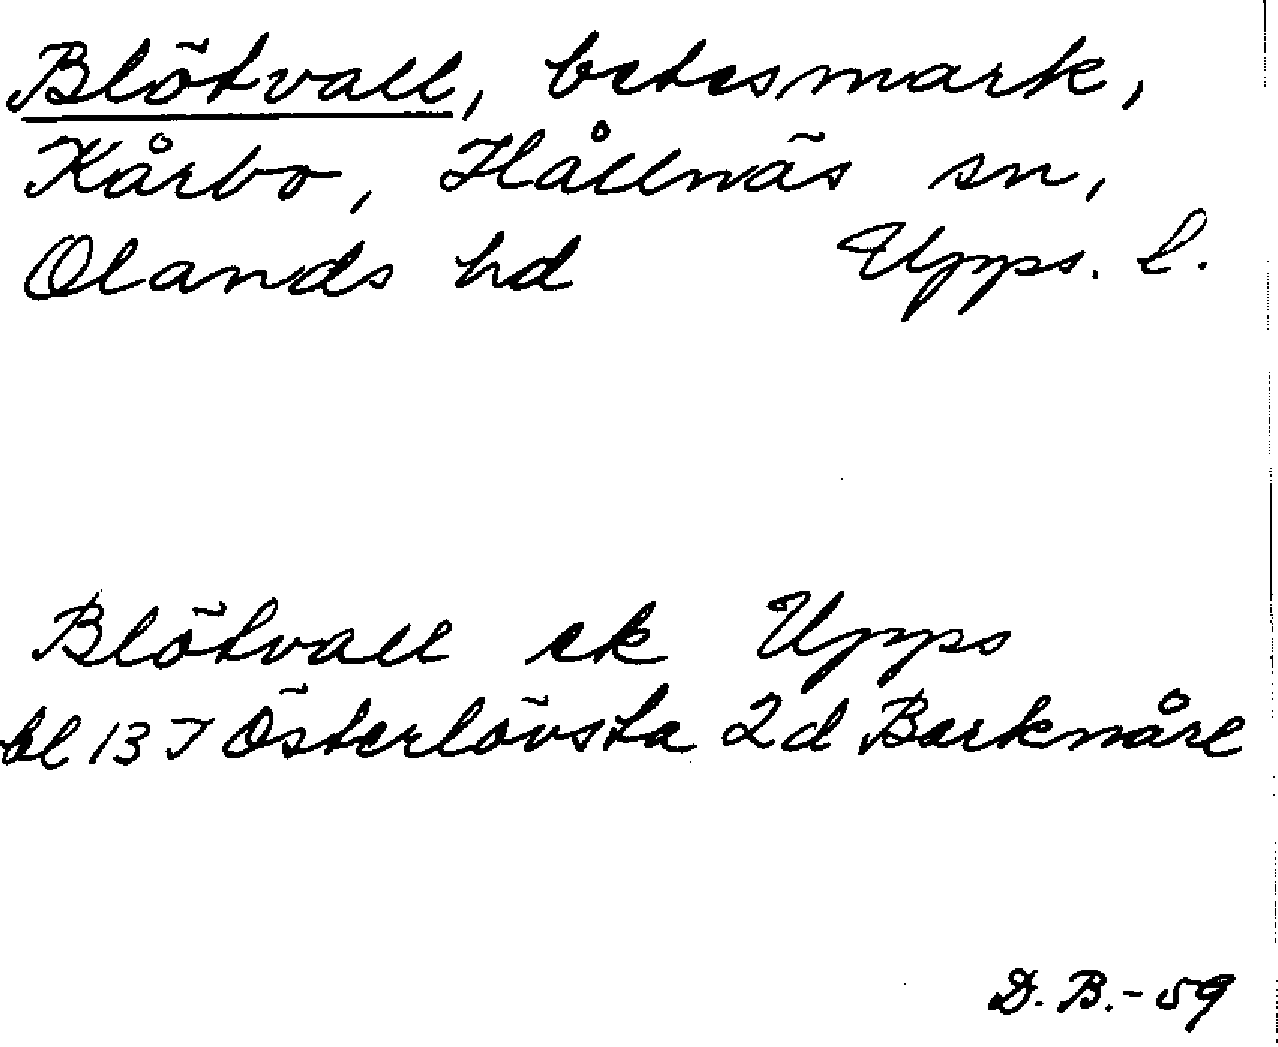 Blötvall, betesmark,
Kårbo, Hållnäs sn,
Olands hd Upps. l.
Blötvall ek Upps
bl 13 J Österlövsta 2d Barknåre
D. B. - 59